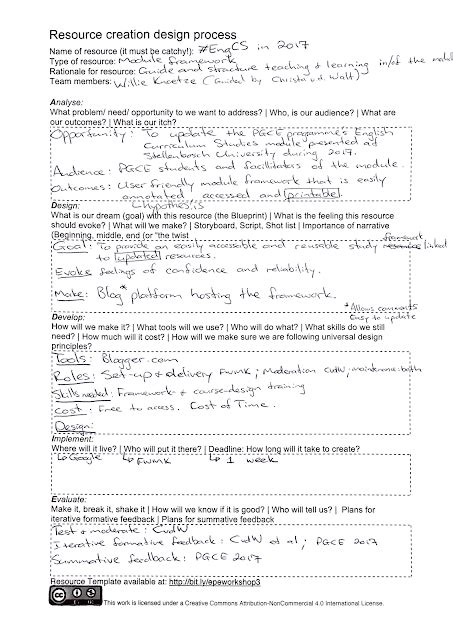 Resource creation design process
Name of resource (it must be catchy!): #EngCS in 2017
Type of resource: Module framework
Rationale for resource: Guide and structure teaching & learning in/of the module
Team members: Willie (Guided by Christa v.d. Walt)
Analyse:
What problem/ need/ opportunity to we want to address? | Who, is our audience? | What are
our outcomes? | What is our itch?
Opportunity: To update the PGCE programme's English
Curriculum Studies module presented at
Stellenbosch University during 2017.
Audience: PGCE students and facilitators of the module.
Outcomes: User friendly module framework that is easily
annotated accessed and printable.
Design: hypothesis
What is our dream (goal) with this resource (the Blueprint) | What is the feeling this resource
should evoke? | What will we make? | Storyboard, Script, Shot list | Importance of narrative
(Beginning, middle, end (or "the twist
Goal: To provide an easily accessible and reusable study framework resource linked
to updated resources.
Evoke feelings of confidence and reliability.
Make: Blog* platform hosting the framework.
* Allows comments
Easy to update
Develop:
How will we make it? | What tools will we use? | Who will do what? | What skills do we still
need? | How much will it cost? | How will we make sure we are following universal design
principles?
Tools: Blogger.com
Roles: Set-up & delivery FWMK; Moderation CvdW; maintenance: both
Skills needed: Framework & course-design training
Cost: Free to access. Cost of Time.
Design:
Implement:
Where will it live? | Who will put it there? | Deadline: How long will it take to create?
↳ Google ↳ FWMK ↳ 1 week
Evaluate:
Make it, break it, shake it | How will we know if it is good? | Who will tell us? | Plans for
iterative formative feedback | Plans for summative feedback
Test & moderate: CvdW
Iterative formative feedback: CvdW et al; PGCE 2017
Summative feedback: PGCE 2017
Resource Template available at: http://bit.ly/epeworkshop3
cc BY NC This work is licensed under a Creative Commons Attribution-NonCommercial 4.0 International License.